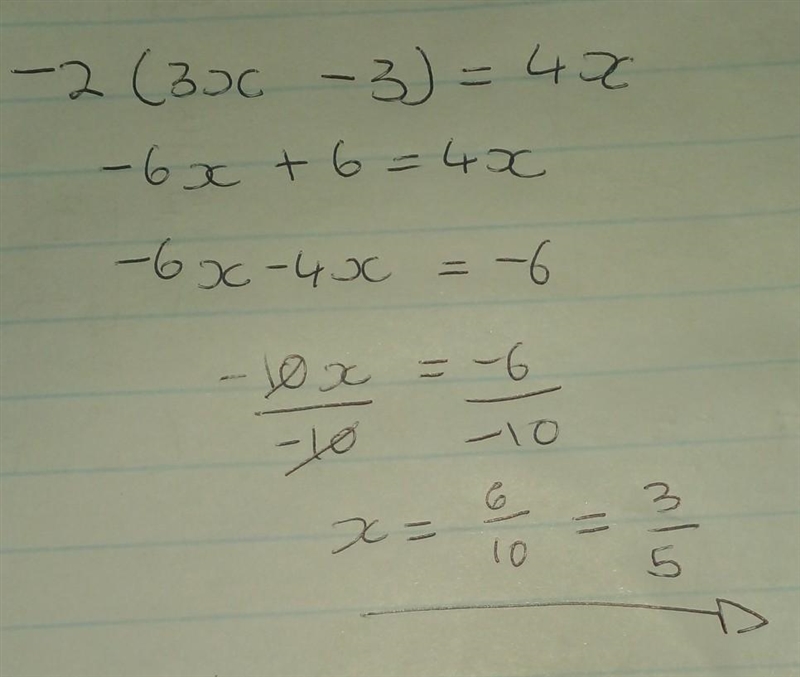 -2 (3x - 3) = 4x
-6x + 6 = 4x
-6x - 4x = -6
-10x = -6
-10 -10
x = 6/10 = 3/5